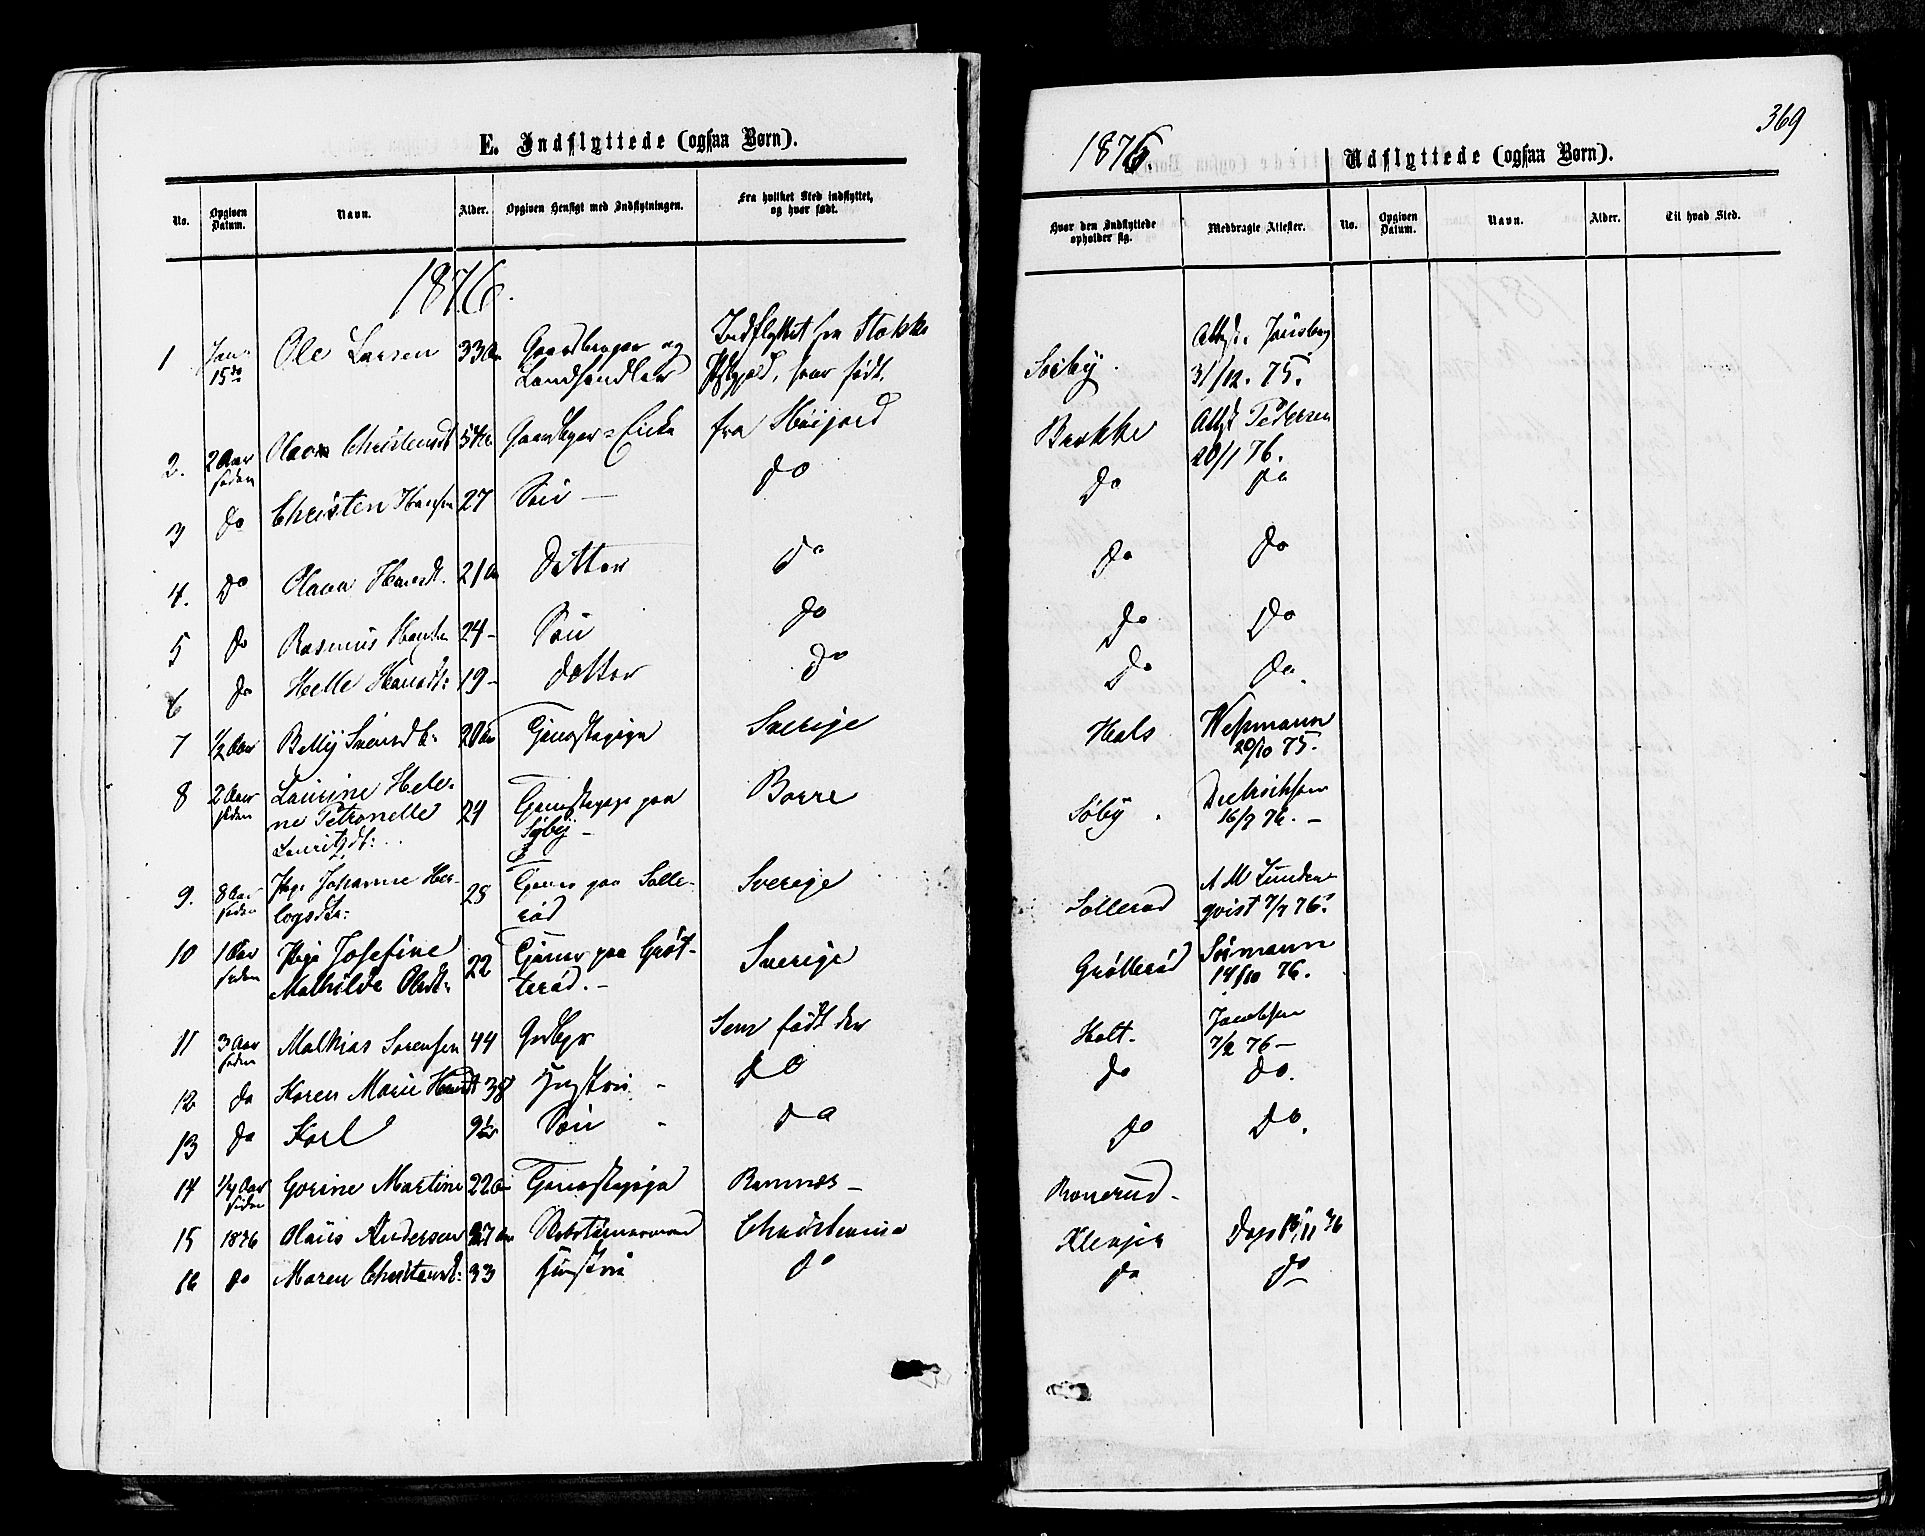 E. Indflyttede (ogsaa Børn).
No. Opgiven Datum. Navn. Alder. Opgiven Hensigt med Indflytningen. Fra hvilket Sted indflyttet, og hvor født.
1876.
1 Jan. 15de Ole Larsen 33 Aar Gaardbruger og Landhandler Indflyttet fra Stokke Pstgjeld, hvor født.
2. 2 Aar siden Olava Christensdt 54 Aar Gaardbrger=Enke fra Høijord
3 do Christen Hansen 27 Søn — do
4. do Olava Hansdt. 21 Aar Datter do
5 do Rasmus Hansen 24 - Søn do
6 do Helle Hansdt: 19 - datter do
7 1/2 Aar Betty Svensdt: 20 Aar Tjenestepige Sverige
8 2 Aar siden Laurine Hele-
ne Petronelle
Lauritzdt: 24 Tjenestepige paa Søby - Borre
9. 8 Aar siden Pige Johanne Her-
logsdtr: 25 Tjener paa Solle-
rød Sverige
10 1 Aar siden Pige Josefine
Mathilde Olsdt: 22 Tjener paa Grøt-
terød. - Sverige
11 3 Aar siden Mathias Sørensen 44 Grdbgr Sem født der
12 do Karen Marie Hansdt 38 Hustru - do
13 do Karl 9 Aar Søn - do
14 1/4 Aar siden Gorine Martine 22 Aar Tjenestepige Ramnes -
15 1876 Olaus Andersen 27 Aar Christiania
16 do Maren Christensdt: 33 Hustru do
369
1876. Udflyttede (ogsaa Børn).
Hvor den Indflyttede opholder sig. Medbragte Attester. No. Opgiven Datum. Navn. Alder. Til hvad Sted.
Søeby. Attest. 31/12. 75.
Brekke Attest Pedersen 20/1 76.
do do
do do
do do
do do.
Hals Wessmann 20/10 75.
Søby. Diedrichsen 16/7 76. -
Sollerød A M Lunden-
qvist 7/7 76.
Grøtterød Sörmann 14/10 76.
Holt. Jacobsen 7/2 76 -
do do.
do do.
Ronerud -
Klevjer Daps 76
do do